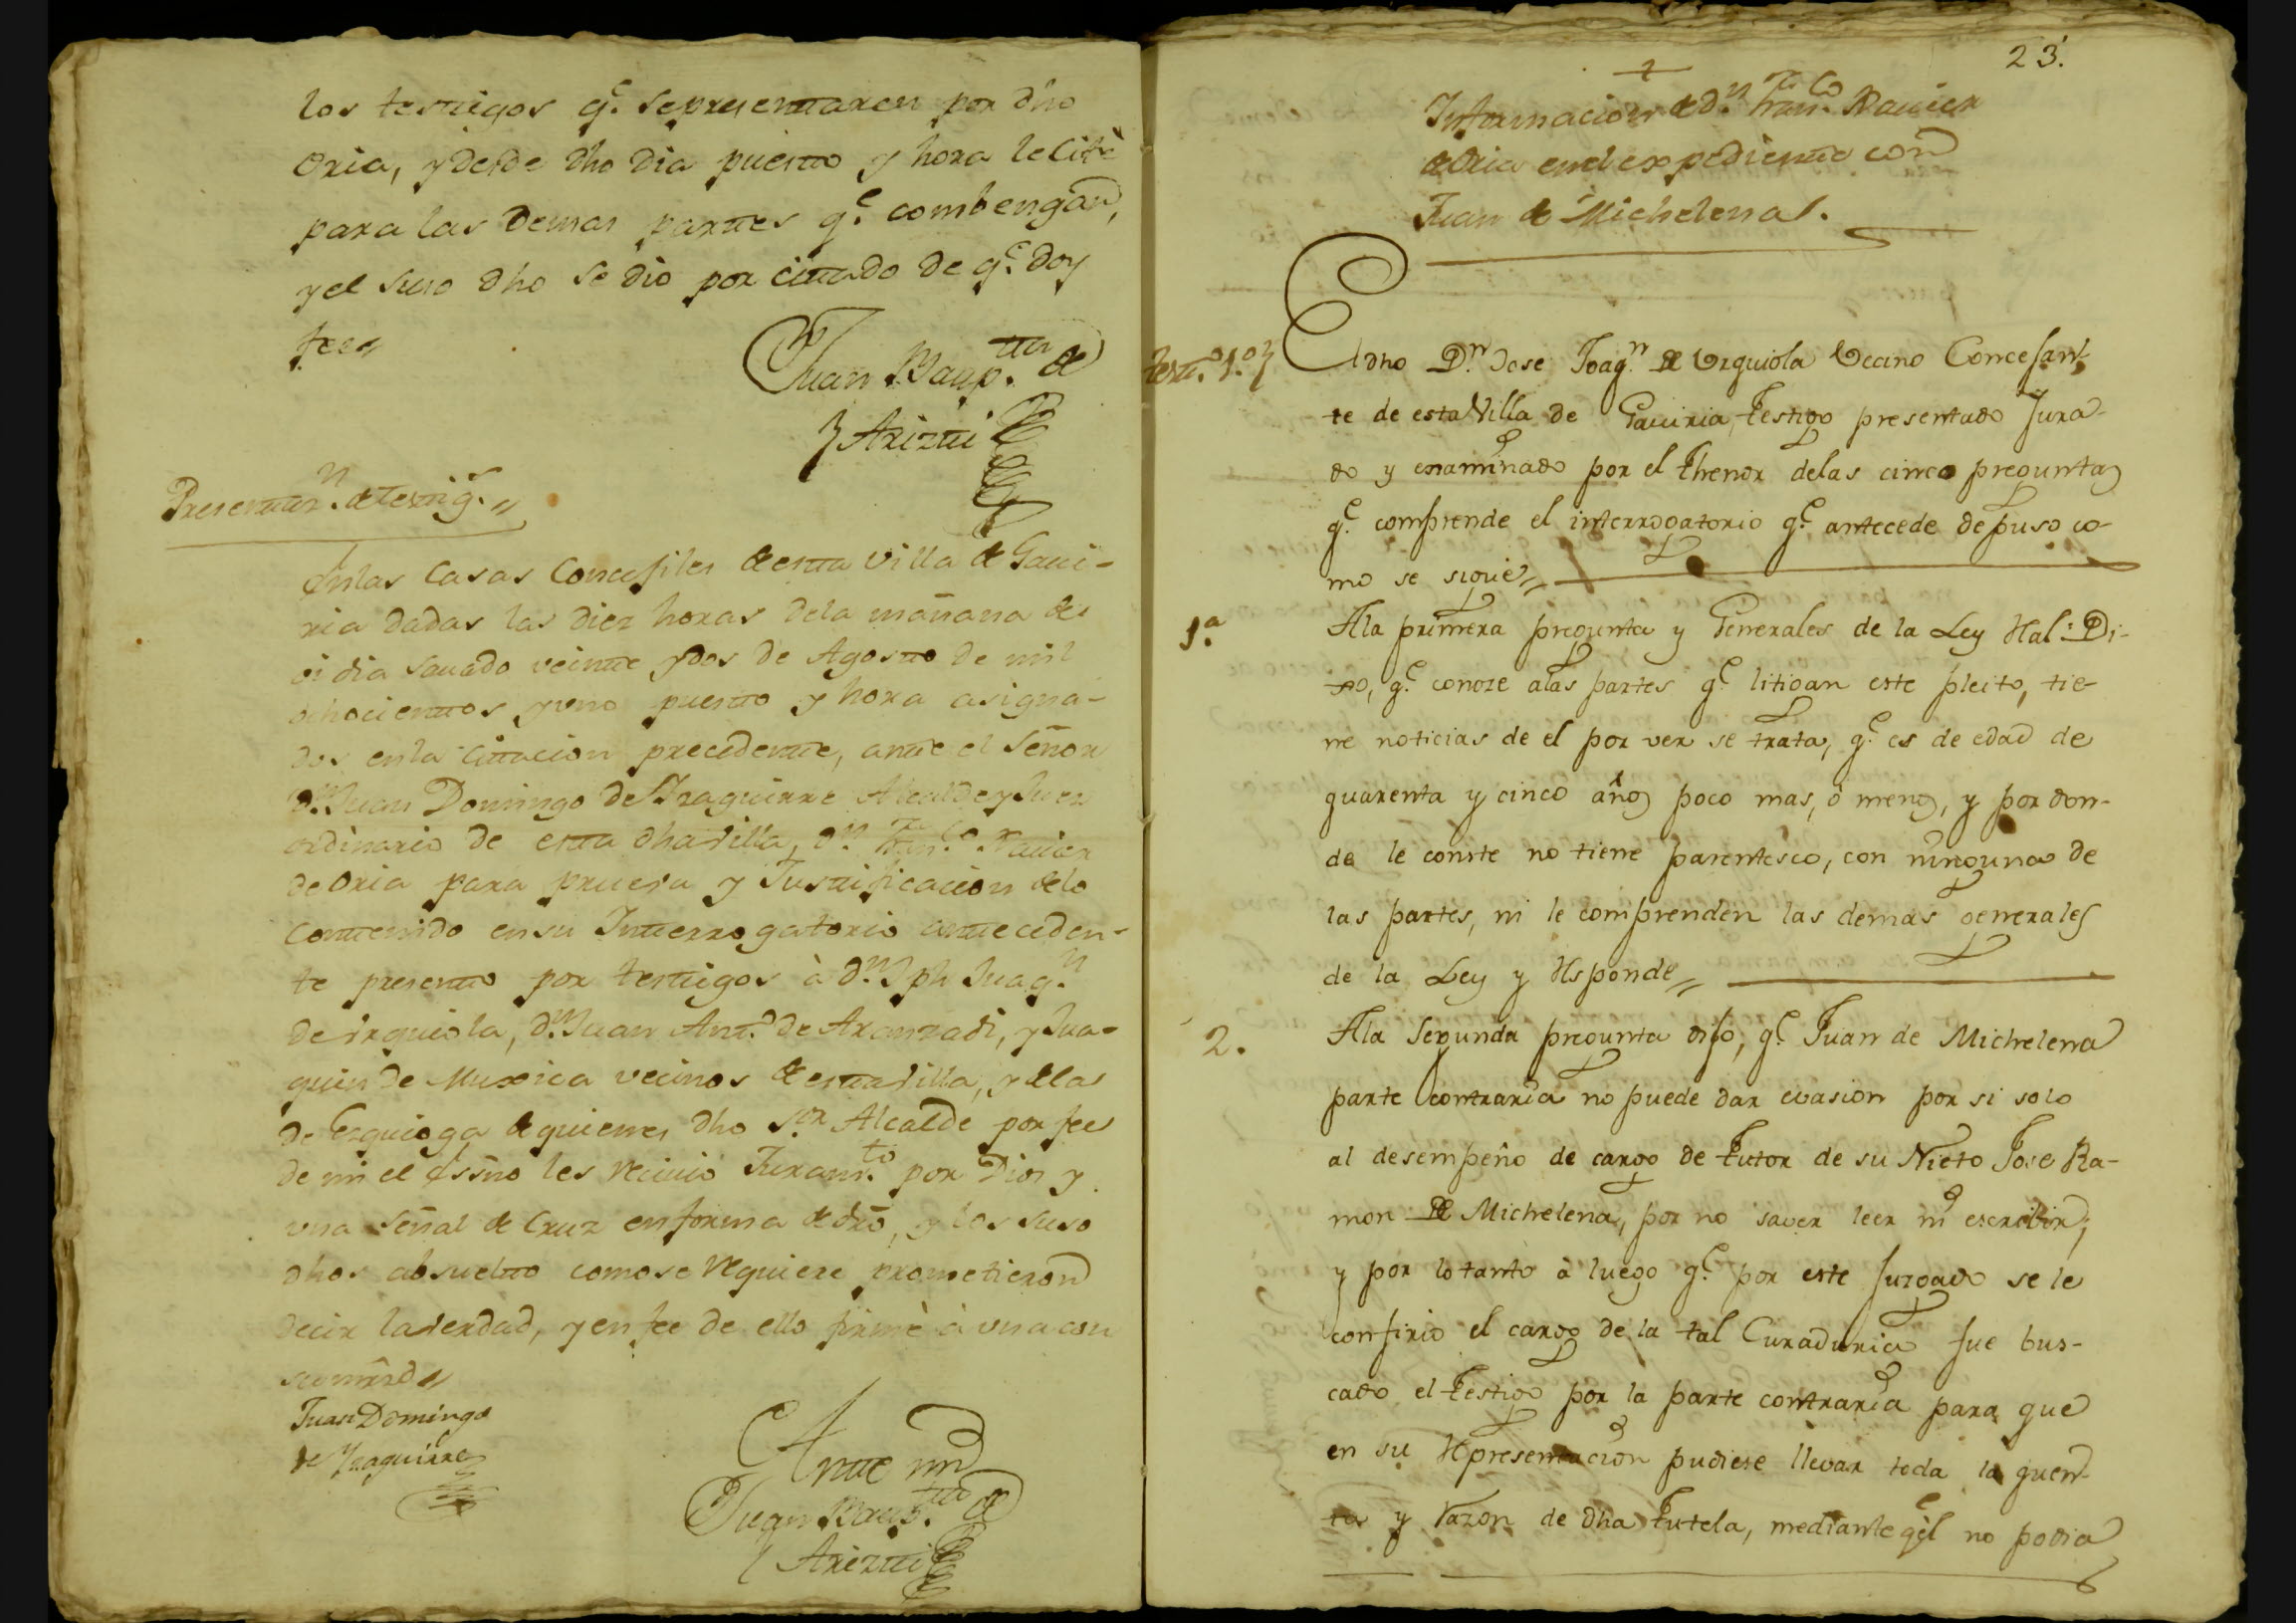 los testigos q.e se presentaren por dho
Oria, y desde dho dia puesto y hora le Citè
para las demas partes q.e combengan,
y el suso dho se dio por citado de q.e doy
fee,,
Juan Baup.ta de
Arizti
Presentaz.n de testig.s,,
En las Casas Concejiles de esta Villa de Gavi-
ria dadas las diez horas dela mañana de
oi dia Savado veinte y dos de Agosto de mil
ochocientos y uno puesto y hora asigna-
dos en la Citacion precedente, ante el Señor
d.n Juan Domingo de Yraguirre Alcalde y Juez
ordinario de esta dha Villa, d.n Fran.co Xavier
de Oria para prueva y Justificacion delo
contenido en su Interrogatorio anteceden-
te presento por testigos à d.n Jph Juaq.n
de Urquiola, d.n Juan Ant.o de Aranzadi, y Jua-
quin de Muxica vecinos de esta Villa, y dela
de Ezquioga de quienes dho S.or Alcalde por fee
de mi el Essno les recivio Juram.to por Dios y
una señal de Cruz en forma de dro, y los suso
dhos absuelto como se requiere prometieron
decir la verdad, y en fee de ello firmè à una con
su mrd,,
Juan Domingo
de Yraguirre
Ante mi
Juan Baup.ta de
Arizti
23.
Informacion de d.n Fran.co Xavier
de Oria en el expediente con
Juan de Michelena.
Test.o 1.o
El dho D.n Jose Joaq.n de Urquiola Vecino Concejan-
te de esta Villa de Gaviria, testigo presentado Jura-
do y examinado por el thenor delas cinco preguntas
q.e comprende el interrogatorio q.e antecede depuso co-
mo se sigue,,
1.a
Ala primera pregunta y Generales de la Ley Real: Di-
xo, q.e conoze alas partes q.e litigan este pleito, tie-
ne noticias de el por ver se trata, q.e es de edad de
quarenta y cinco años poco mas, ó menos, y por don-
de le conste no tiene parentesco, con ninguna de
las partes, ni le comprenden las demas generales
de la Ley y Responde,,
2.
Ala Segunda pregunta dijo, q.e Juan de Michelena
parte contraria no puede dar evasion por si solo
al desempeño de cargo de tutor de su Nieto Jose Ra-
mon de Michelena, por no saver leer ni escribir;
y por lo tanto à luego q.e por este Juzgado se le
confirio el cargo de la tal Curaduria fue bus-
cado el testigo por la parte contraria para que
en su Representacion pudiese llevar toda la quen-
ta y razon de dha tutela, mediante q.e el no podia